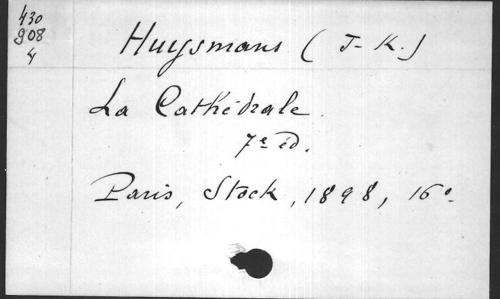 430
908
4
Huysmans (J-K.)
La Cathédrale.
7e éd.
Paris, Stock, 1898, 16o.